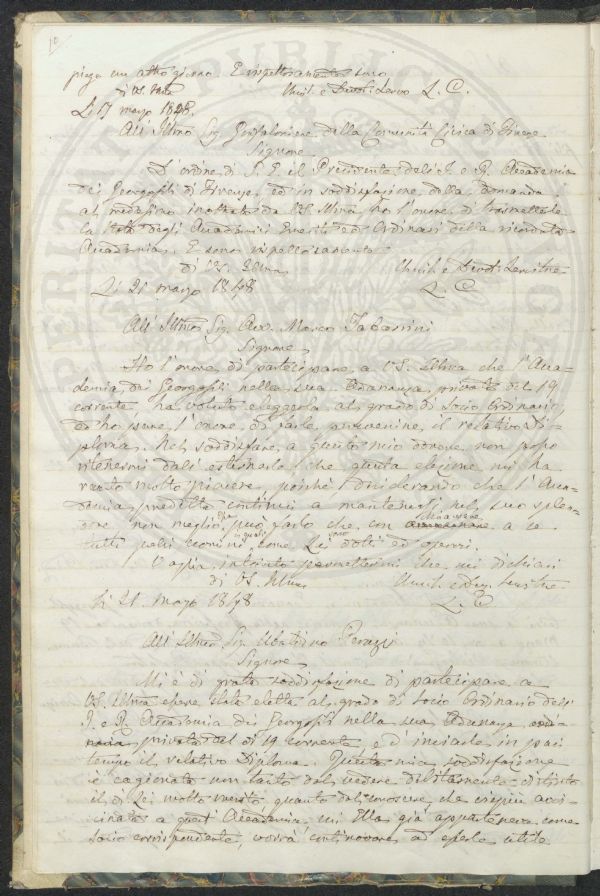 10
piego un altro giorno. E rispettosamente sono
di VS. Illma Umil. e Devot. Servo L. C.
Li 17 marzo 1848.
All' Illmo Sig. Gonfaloniere della Comunità Civica di Firenze
Signore
D'ordine di S. E. il Presidente dell' I. e R. Accademia
dei Georgofili di Firenze, ed in soddisfazione della domanda
al medesimo inoltrata da VS. Illma ho l'onore di trasmetterle
la Nota degli Accademici Emeriti ed Ordinari della ricordata
Accademia. E sono rispettosamente
di VS. Illma Umil. e Devot. Servitore
Li 21 marzo 1848 L. C.
All' Illmo Sig. Avv. Marco Tabarrini
Signore
Ho l'onore di partecipare a VS. Illma che l'Acca-
demia dei Georgofili nella sua Adunanza privata del 19
corrente ha voluto eleggerla al grado di Socio Ordinario,
ed ho pure l'onore di farle pervenire il relativo Di-
ploma. Nel soddisfare a questo mio dovere, non posso
ritenermi dall' esternarle che questa elezione mi ha
recato molto piacere, poichè desiderando che l'Acca-
demia predetta continui a mantenersi nel suo splen-
dore non meglio può farlo che con a se
tutti quelli uomini come Lei dotti ed operosi.
Voglia intanto permettermi che mi dichiari
di VS. Illma Umil. e Dev. Servitore
Li 21. marzo 1848 L. C.
All' Illmo Sig. Ubaldino Peruzzi
Signore
Mi è di grata soddisfazione di partecipare a
VS. Illma essere stata eletta al grado di Socio Ordinario dell'
I. e R. Accademia dei Georgofili nella sua Adunanza ordi-
naria privata del dì 19 corrente e d'inviarle in pari
tempo il relativo Diploma. Questa mia soddisfazione
è cagionata non tanto dal vedere debitamente distinto
il di Lei molto merito, quanto dal conoscere che vieppiù avvi-
cinata a quest' Accademia cui Ella già apparteneva come
socio corrispondente, vorrà continovare ad esserle utile